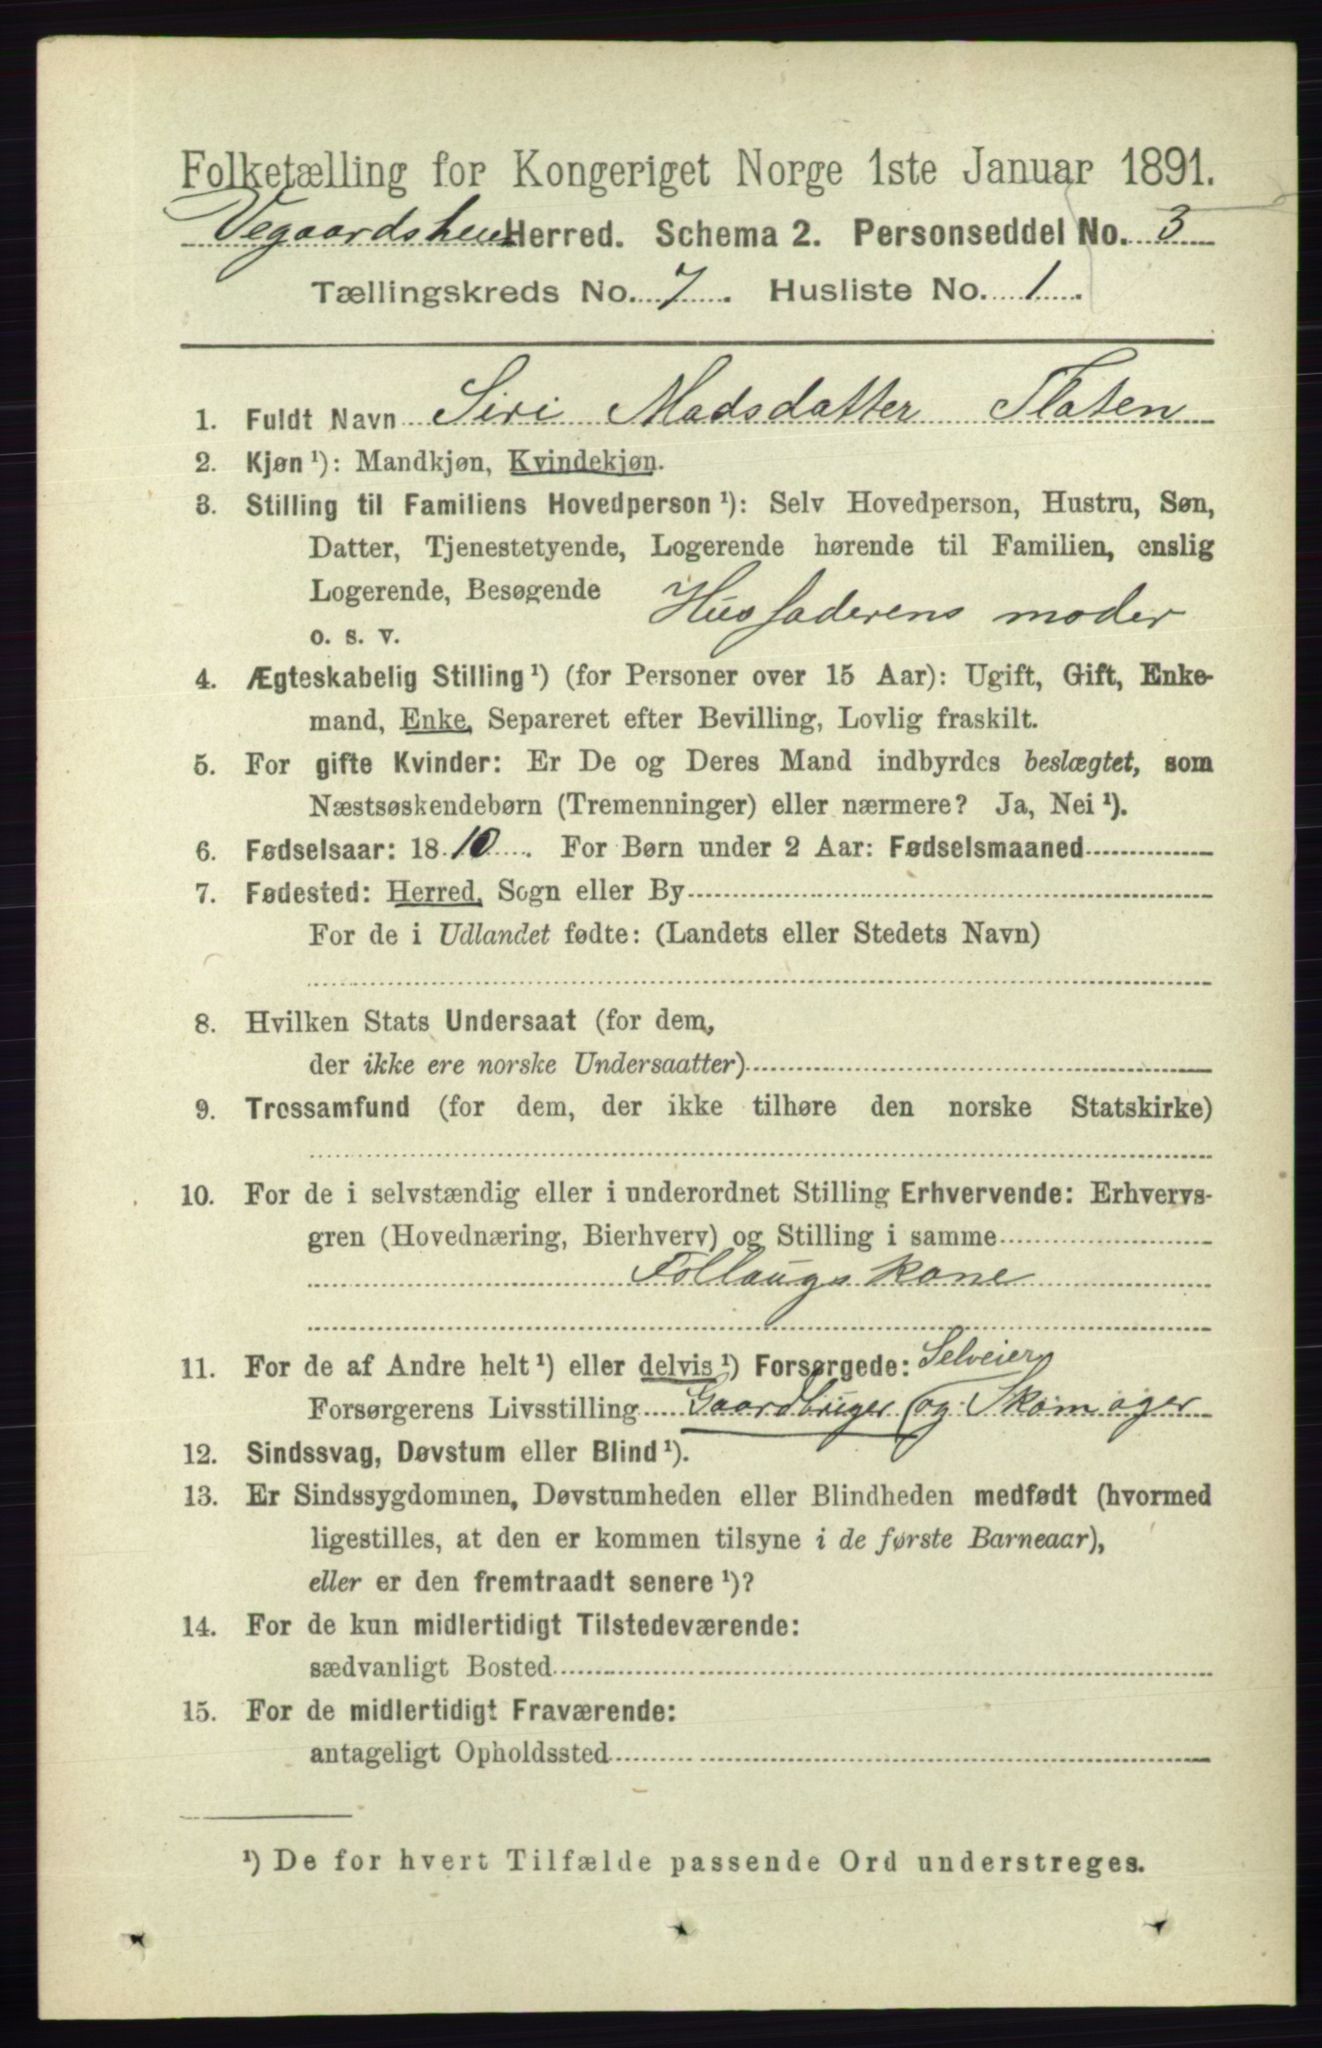 Folketælling for Kongeriget Norge 1ste Januar 1891.
Vegaardsheien Herred. Schema 2. Personseddel No. 3
Tællingskreds No. 7. Husliste No. 1.
1. Fuldt Navn Siri Madsdatter Flaten
2. Kjøn ¹): Mandkjøn, Kvindekjøn.
3. Stilling til Familiens Hovedperson ¹): Selv Hovedperson, Hustru, Søn,
Datter, Tjenestetyende, Logerende hørende til Familien, enslig
Logerende, Besøgende
o. s. v. Husfaderens moder
4. Ægteskabelig Stilling ¹) (for Personer over 15 Aar): Ugift, Gift, Enke-
mand, Enke, Separeret efter Bevilling, Lovlig fraskilt.
5. For gifte Kvinder: Er De og Deres Mand indbyrdes beslægtet, som
Næstsøskendebørn (Tremenninger) eller nærmere? Ja, Nei ¹).
6. Fødselsaar: 1810. For Børn under 2 Aar: Fødselsmaaned
7. Fødested: Herred, Sogn eller By
For de i Udlandet fødte: (Landets eller Stedets Navn)
8. Hvilken Stats Undersaat (for dem,
der ikke ere norske Undersaatter)
9. Trossamfund (for dem, der ikke tilhøre den norske Statskirke)
10. For de i selvstændig eller i underordnet Stilling Erhvervende: Erhvervs-
gren (Hovednæring, Bierhverv) og Stilling i samme
Follaugskone
11. For de af Andre helt ¹) eller delvis ¹) Forsørgede: Selveier
Forsørgerens Livsstilling Gaardbruger og Skomager
12. Sindssvag, Døvstum eller Blind ¹).
13. Er Sindssygdommen, Døvstumheden eller Blindheden medfødt (hvormed
ligestilles, at den er kommen tilsyne i de første Barneaar),
eller er den fremtraadt senere ¹)?
14. For de kun midlertidigt Tilstedeværende:
sædvanligt Bosted
15. For de midlertidigt Fraværende:
antageligt Opholdssted
¹) De for hvert Tilfælde passende Ord understreges.